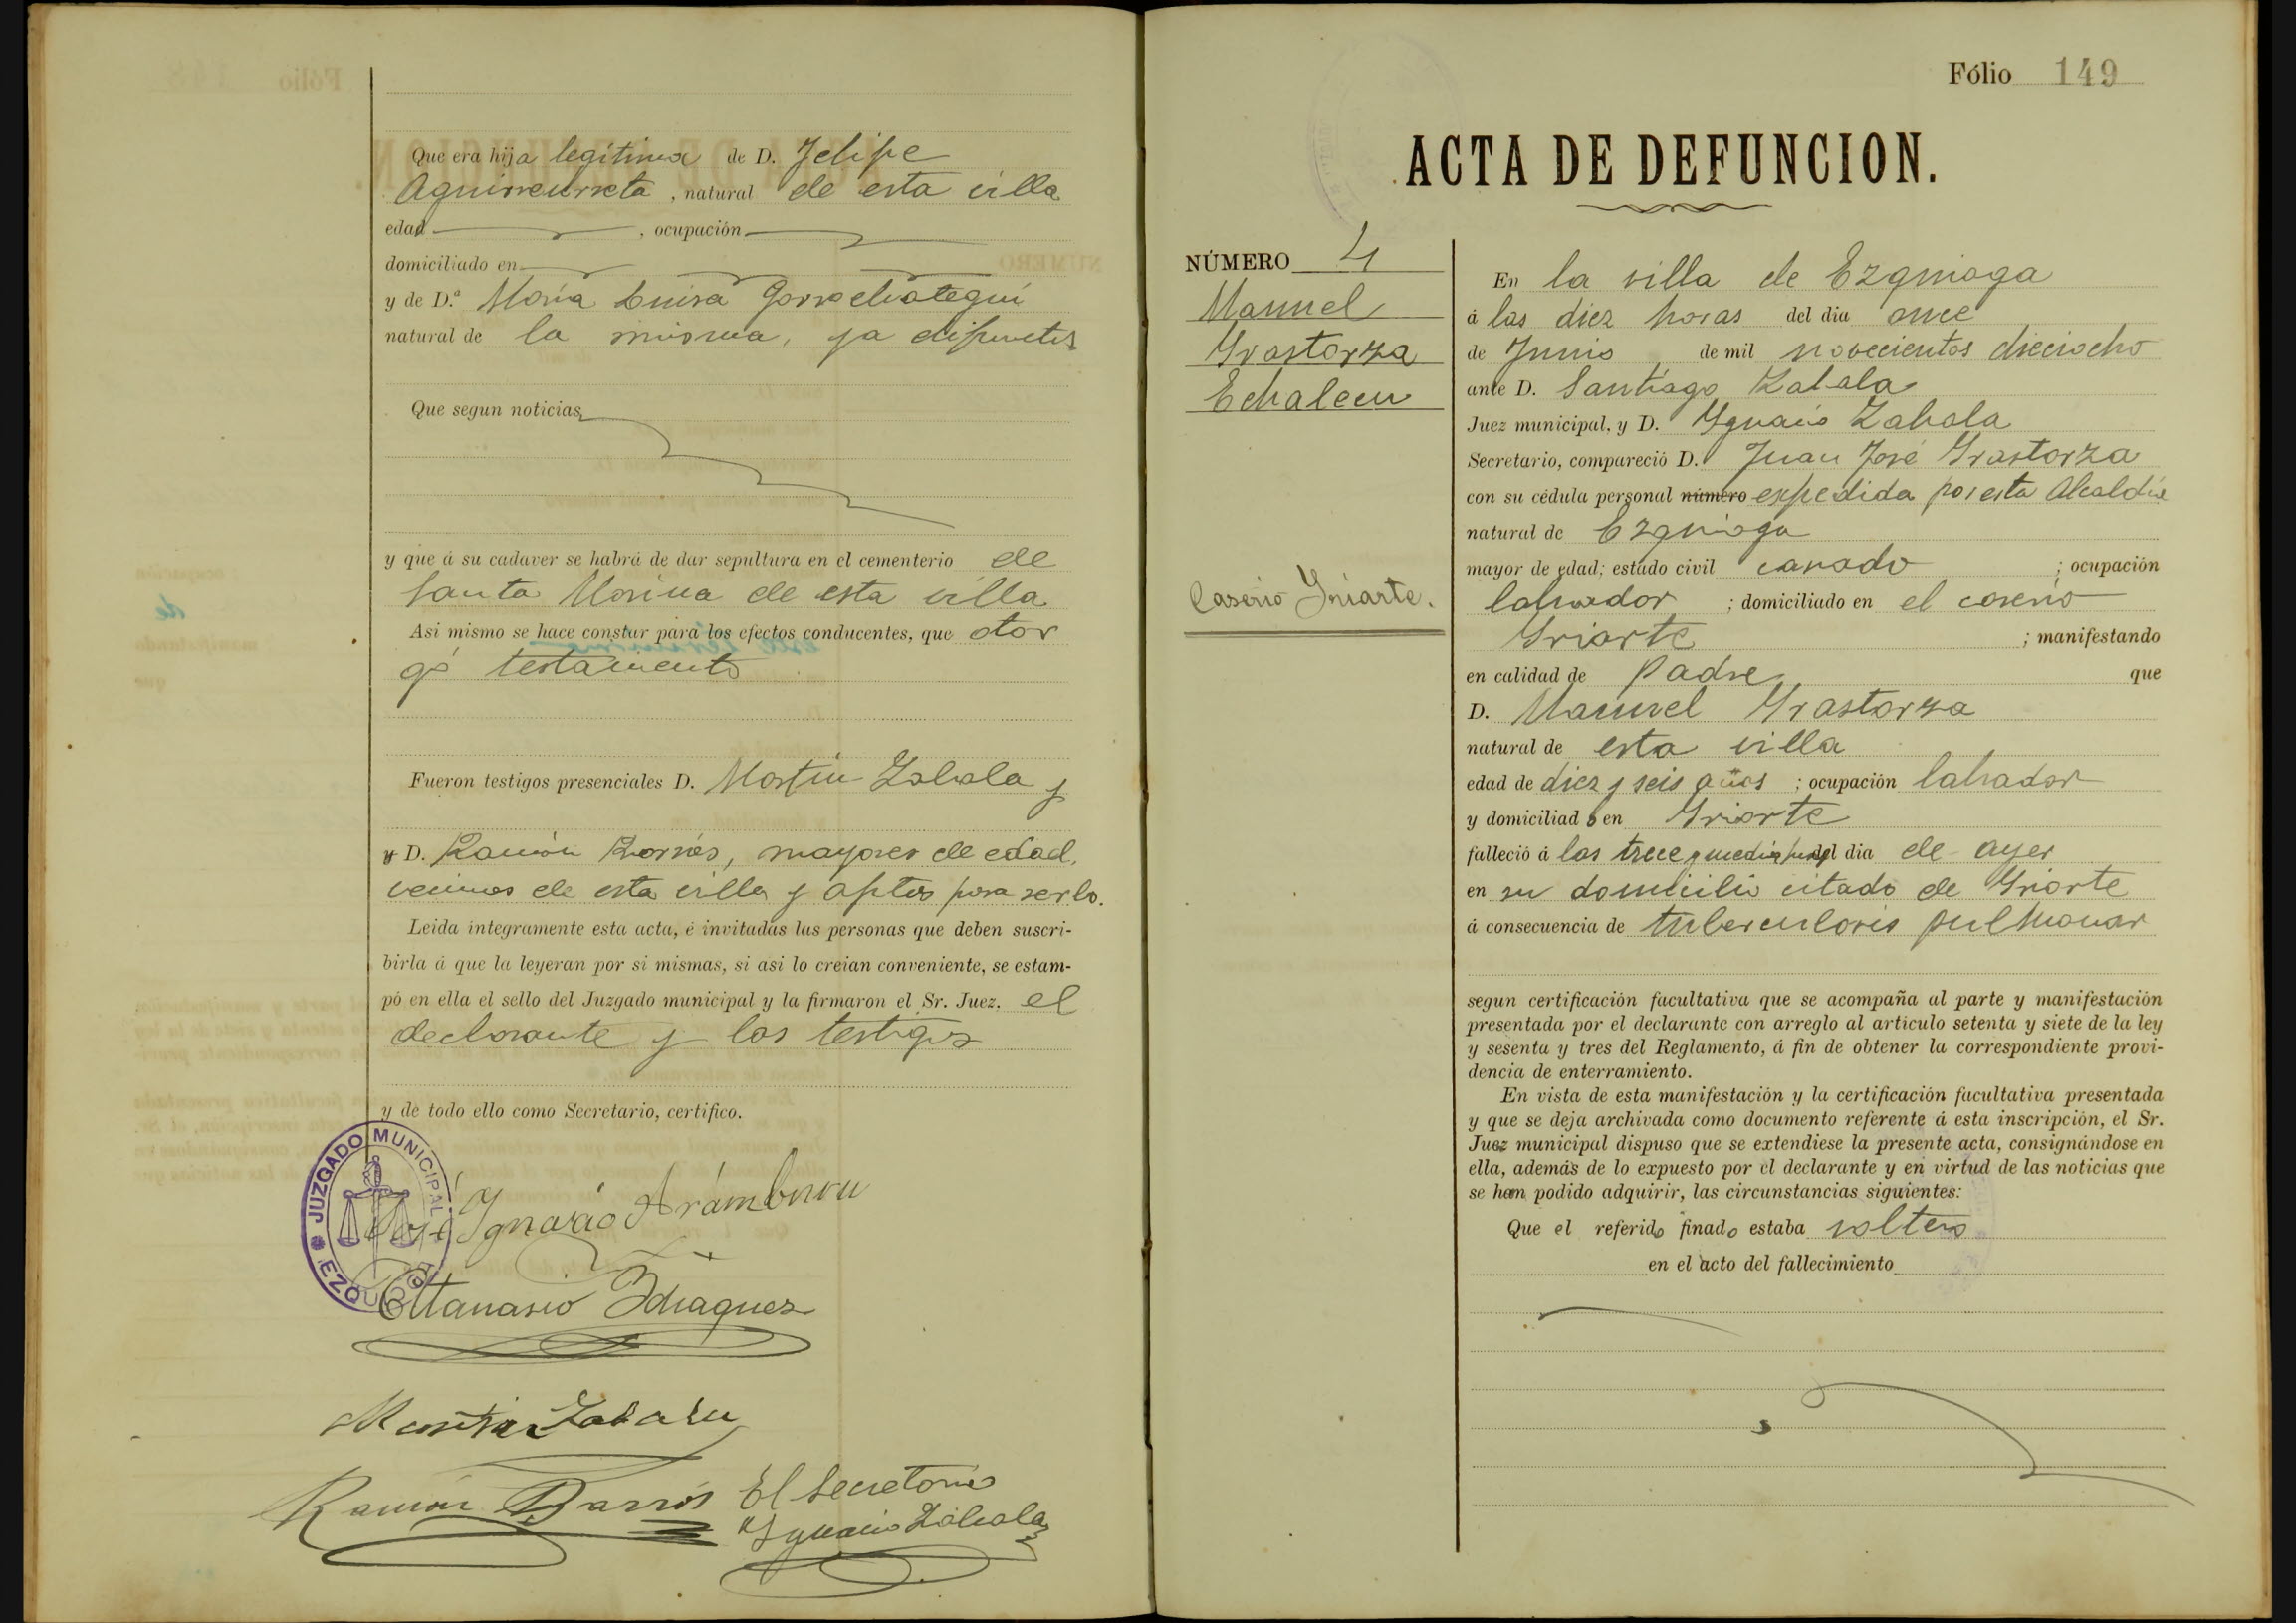 Que era hija legítima de D. Felipe
Aguirreurreta, natural de esta villa
edad , ocupación
domiciliado en
y de D.ª María Luisa Gorrochategui
natural de la misma, ya difuntos
Que segun noticias
y que á su cadaver se habrá de dar sepultura en el cementerio de
Santa Marina de esta villa
Asi mismo se hace constar para los efectos conducentes, que otor
gó testamento
Fueron testigos presenciales D. Martín Zabala y
y D. Ramón Barrios, mayores de edad,
vecinos de esta villa y aptos para serlo.
Leida integramente esta acta, é invitadas las personas que deben suscri-
birla á que la leyeran por si mismas, si asi lo creian conveniente, se estam-
pó en ella el sello del Juzgado municipal y la firmaron el Sr. Juez. el
declarante y los testigos
y de todo ello como Secretario, certifico.
JUZGADO MUNICIPAL
EZQUIOGA
José Ignacio Arámburu
Atanasio Idiaquez
Martin Zabala
Ramón Barrios El Secretario
Ignacio Zabala
Fólio 149
ACTA DE DEFUNCION.
NÚMERO 4
Manuel
Yrastorza
Echalecu
Caserio Yriarte.
En la villa de Ezquioga
á las diez horas del dia once
de Junio de mil novecientos dieciocho
ante D. Santiago Zabala
Juez municipal, y D. Ygnacio Zabala
Secretario, compareció D. Juan José Yrastorza
con su cédula personal número expedida por esta Alcaldía
natural de Ezquioga
mayor de edad; estado civil casado ; ocupación
labrador ; domiciliado en el caserio
Yriarte ; manifestando
en calidad de Padre que
D. Manuel Yrastorza
natural de esta villa
edad de diez y seis años ; ocupación labrador
y domiciliado en Yriarte
falleció á las trece y media del dia de ayer
en su domicilio citado de Yriarte
á consecuencia de tuberculosis pulmonar
segun certificación facultativa que se acompaña al parte y manifestación
presentada por el declarante con arreglo al articulo setenta y siete de la ley
y sesenta y tres del Reglamento, á fin de obtener la correspondiente provi-
dencia de enterramiento.
En vista de esta manifestación y la certificación facultativa presentada
y que se deja archivada como documento referente á esta inscripción, el Sr.
Juez municipal dispuso que se extendiese la presente acta, consignándose en
ella, además de lo expuesto por el declarante y en virtud de las noticias que
se han podido adquirir, las circunstancias siguientes:
Que el referido finado estaba soltero
en el acto del fallecimiento